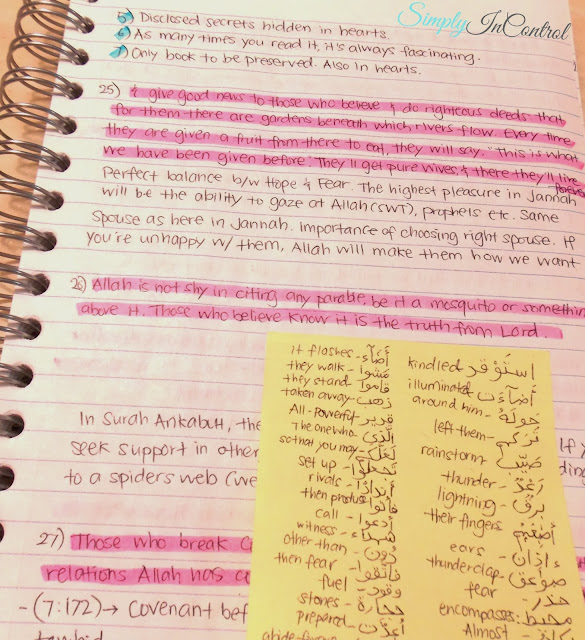 SimplyInControl
5) Disclosed secrets hidden in hearts.
6) As many times you read it, it's always fascinating.
7) Only book to be preserved. Also in hearts.
25) & give good news to those who believe & do righteous deeds that
for them there are gardens beneath which rivers flow. Every time
they are given a fruit from there to eat, they will say. "This is what
we have been given before". They'll get pure wives, & there they'll live
Perfect balance b/w Hope & Fear. The highest pleasure in Jannah
will be the ability to gaze at Allah(SWT), prophets etc. Same
Spouse as here in Jannah. Importance of choosing right spouse. If
you're unhappy w/ them, Allah will make them how we want
26) Allah is not shy in citing any parable, be it a mosquito or somethin
above it. Those who believe know it is the truth from Lord.
In Surah Ankabut, the
seek support in other
to a spiders web (we
27) Those who break
relations Allah has co
- (7:172) → Covenant bef
it flashes - أضآء
they walk - مشوا
they stand - قاموا
taken away - ذهب
All-Powerful - قدير
The one who - الذي
so that you may - لعلكم
set up - تجعلوا
rivals - أندادا
then produce - فأتوا
call - أدعوا
witness - شهداء
other than - دون
then fear - فاتقوا
fuel - وقود
stones - حجارة
prepared - أعدت
kindled استوقد
illuminated أضآءت
around him - حوله
left them - تركهم
rainstorm - صيب
thunder - رعد
lightning - برق
their fingers
ears ءاذان
thunderclap - صواعق
fear - حذر
encompasses - محيط
Almost - كاد